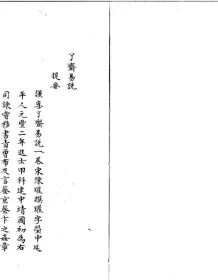 了齋易說
提要
謹案了齋易說一卷宋陳瓘撰瓘字瑩中延
平人元豐二年進士甲科建中靖國初為右
司諫嘗移書責曾布及言蔡京蔡卞之姦章